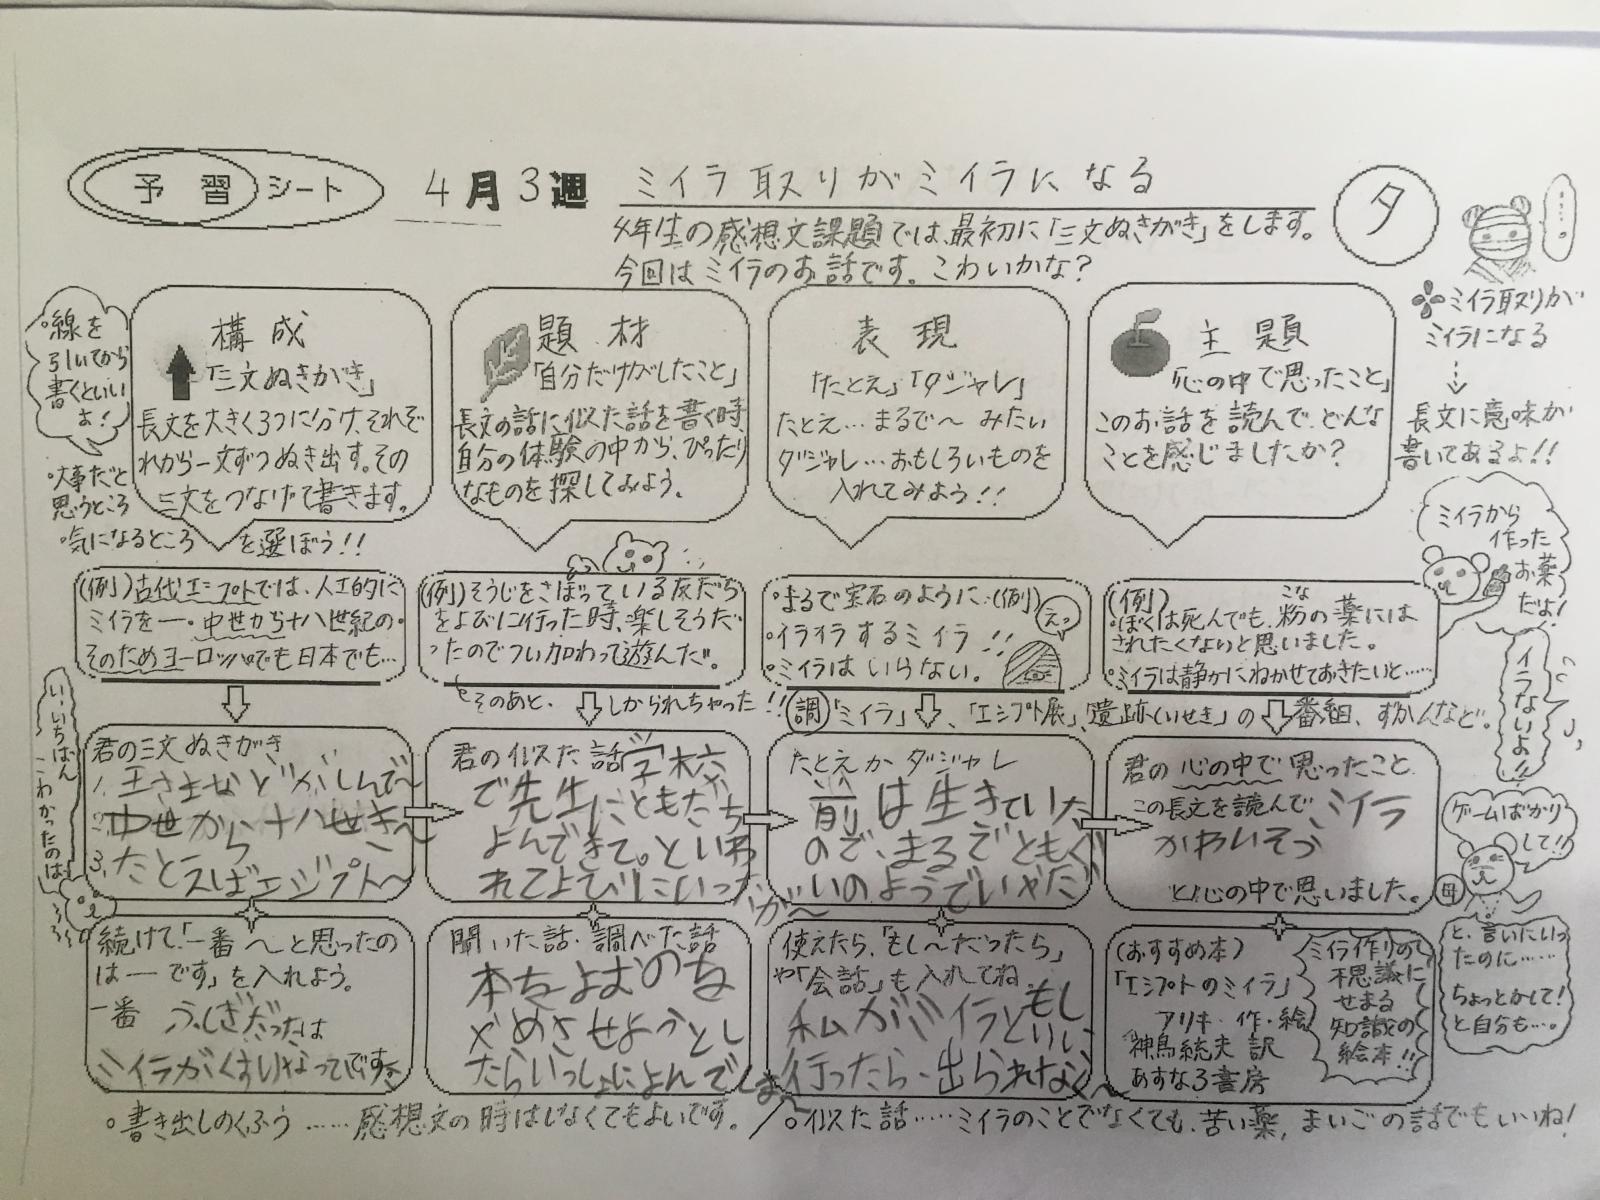 予習シート 4月3週 ミイラ取りがミイラになる タ
4年生の感想文課題では、最初に「三文ぬきがき」をします。
今回はミイラのお話です。こわいかな?
・線を
引いてから
書くといい
よ!
構成
「三文ぬきがき」
長文を大きく3つに分け、それぞ
れから一文ずつぬき出す。その
三文をつなげて書きます。
・大事だと
思うところ
・気になるところ を選ぼう!!
題材
「自分だけがしたこと」
長文の話に似た話を書く時、
自分の体験の中から、ぴったり
なものを探してみよう。
表現
「たとえ」「ダジャレ」
たとえ…まるで〜みたい
ダジャレ…おもしろいものを
入れてみよう!!
主題
「心の中で思ったこと」
このお話を読んで、どんな
ことを感じましたか?
ミイラ取りが
ミイラになる
長文に意味が
書いてあるよ!!
ミイラから
作った
お薬
だよ!
イラないよ!!
(例)古代エジプトでは、人工的に
ミイラを一・中世から十八世紀の・
そのためヨーロッパでも日本でも…
(例)そうじをさぼっている友だち
をよびに行った時、楽しそうだ
ったのでつい加わって遊んだ。
そのあと、しかられちゃった!!
・まるで宝石のように(例)
・イライラするミイラ!!
・ミイラはいらない。
えっ
(例)
・ぼくは死んでも、粉の薬には
こな
されたくないと思いました。
・ミイラは静かにねかせておきたいと……
調「ミイラ」、「エジプト展」、「遺跡(いせき)」の番組、ずかんなど。
い、いちばん
こわかったのは
君の三文ぬきがき
1.王さまなどがしんで〜
2.中世から十八世き〜
3.たとえばエジプト〜
君の似た話 学校
で先生にともだち
よんできて。といわ
れてよびにいったが〜
たとえかダジャレ
前は生きていた
ので、まるでともぐ
いのようでいやだ
君の心の中で思ったこと
この長文を読んで、ミイラ
かわいそう
と心の中で思いました。
ゲームばかり
して!!
母
と、言いにいっ
たのに……
ちょっとかして!
と自分も…。
続けて「一番〜と思ったの
は―です」を入れよう。
一番 ふしぎだったは
ミイラがくすりなってです
聞いた話・調べた話
本をよむのを
やめさせようとし
たらいっしょによんでしま〜
使えたら、「もし〜だったら」
や「会話」も入れてね
もし
私がミイラといい
行ったら、出られなく〜
(おすすめ本)
「エジプトのミイラ」
アリキ・作・絵
神鳥統夫 訳
あすなろ書房
ミイラ作りの
不思議に
せまる
知識の
絵本!!
・書き出しのくふう……感想文の時はしなくてもよいです。/・似た話……ミイラのことでなくても、苦い薬、まいごの話でもいいね!